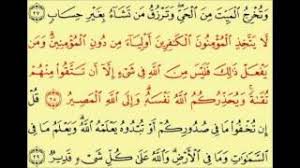 وَتُخْرِجُ الْمَيِّتَ مِنَ الْحَيِّ وَتَرْزُقُ مَن تَشَاءُ بِغَيْرِ حِسَابٍ ٢٧
لَا يَتَّخِذِ الْمُؤْمِنُونَ الْكَافِرِينَ أَوْلِيَاءَ مِن دُونِ الْمُؤْمِنِينَ وَمَن
يَفْعَلْ ذَلِكَ فَلَيْسَ مِنَ اللَّهِ فِي شَيْءٍ إِلَّا أَن تَتَّقُوا مِنْهُمْ
تُقَاةً وَيُحَذِّرُكُمُ اللَّهُ نَفْسَهُ وَإِلَى اللَّهِ الْمَصِيرُ ٢٨ قُلْ
إِن تُخْفُوا مَا فِي صُدُورِكُمْ أَوْ تُبْدُوهُ يَعْلَمْهُ اللَّهُ وَيَعْلَمُ مَا فِي
السَّمَاوَاتِ وَمَا فِي الْأَرْضِ وَاللَّهُ عَلَى كُلِّ شَيْءٍ قَدِيرٌ